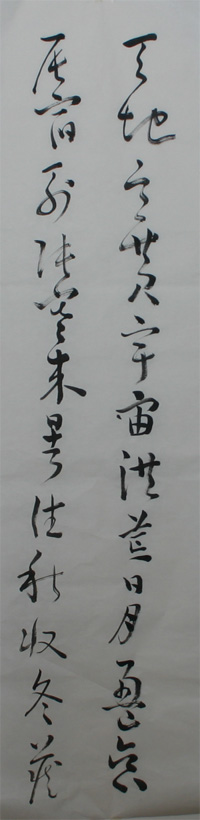 天地玄黄宇宙洪荒日月盈昃
辰宿列张寒来暑往秋收冬藏